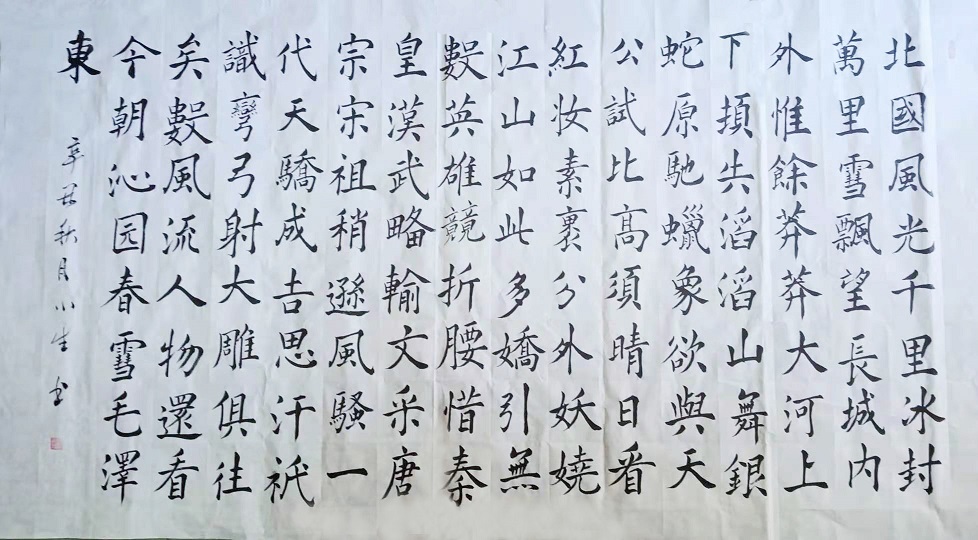 北國風光千里冰封
萬里雪飄望長城内
外惟餘莽莽大河上
下頓失滔滔山舞銀
蛇原馳蠟象欲與天
公試比高須晴日看
紅妆素裹分外妖嬈
江山如此多嬌引無
數英雄競折腰惜秦
皇漢武略輸文采唐
宗宋祖稍遜風騷一
代天驕成吉思汗祇
識彎弓射大雕俱往
矣數風流人物還看
今朝沁园春雪毛澤
東
辛丑秋月小生书